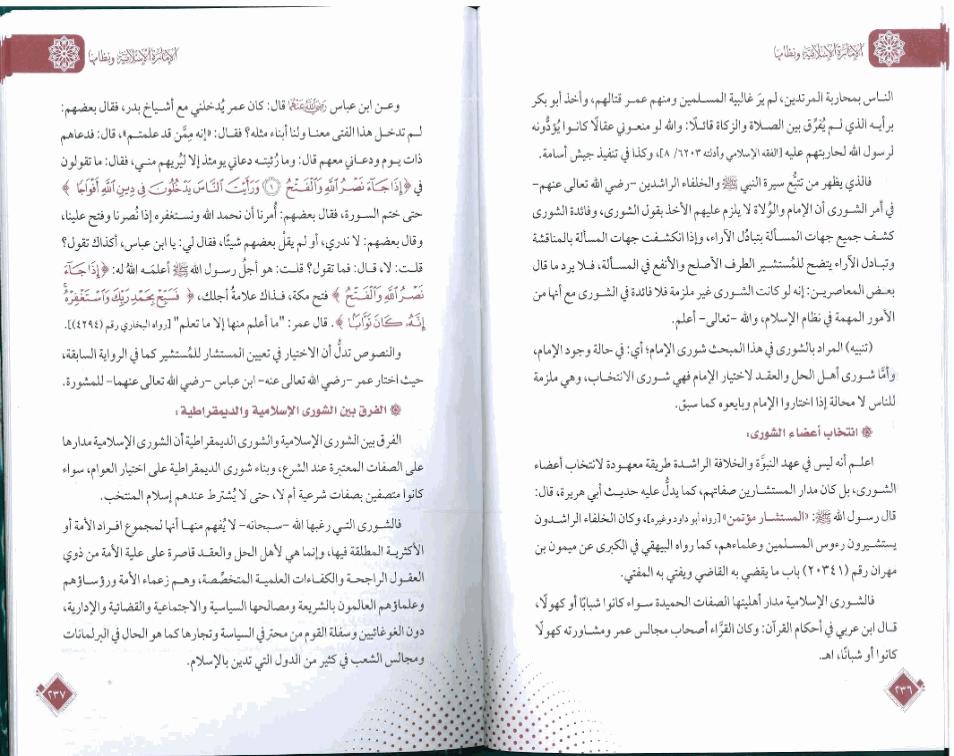 الإمارة الإسلامية ونظامها
الناس بمحاربة المرتدين، لم يرَ غالبية المسلمين ومنهم عمر قتالهم، وأخذ أبو بكر
برأيه الذي لم يُفرِّق بين الصلاة والزكاة قائلًا: والله لو منعوني عقالًا كانوا يُؤدُّونه
لرسول الله لحاربتهم عليه [الفقه الإسلامي وأدلته ٦٢٠٣/ ٨]، وكذا في تنفيذ جيش أسامة.
فالذي يظهر من تتبُّع سيرة النبي ﷺ والخلفاء الراشدين -رضي الله تعالى عنهم-
في أمر الشورى أن الإمام والوُلاة لا يلزم عليهم الأخذ بقول الشورى، وفائدة الشورى
كشف جميع جهات المسألة بتبادُل الآراء، وإذا انكشفت جهات المسألة بالمناقشة
وتبادل الآراء يتضح للمُستشير الطرف الأصلح والأنفع في المسألة، فلا يرد ما قال
بعض المعاصرين: إنه لو كانت الشورى غير ملزمة فلا فائدة في الشورى مع أنها من
الأمور المهمة في نظام الإسلام، والله -تعالى- أعلم.
(تنبيه) المراد بالشورى في هذا المبحث شورى الإمام؛ أي: في حالة وجود الإمام،
وأمَّا شورى أهل الحل والعقد لاختيار الإمام فهي شورى الانتخاب، وهي ملزمة
للناس لا محالة إذا اختاروا الإمام وبايعوه كما سبق.
انتخاب أعضاء الشورى:
اعلم أنه ليس في عهد النبوَّة والخلافة الراشدة طريقة معهودة لانتخاب أعضاء
الشورى، بل كان مدار المستشارين صفاتهم، كما يدلُّ عليه حديث أبي هريرة، قال:
قال رسول الله ﷺ: «المستشار مؤتمن» [رواه أبو داود وغيره]، وكان الخلفاء الراشدون
يستشيرون رءوس المسلمين وعلماءهم، كما رواه البيهقي في الكبرى عن ميمون بن
مهران رقم (٢٠٣٤١) باب ما يقضي به القاضي ويفتي به المفتي.
فالشورى الإسلامية مدار أهليتها الصفات الحميدة سواء كانوا شبابًا أو كهولًا،
قال ابن عربي في أحكام القرآن: وكان القرَّاء أصحاب مجالس عمر ومشاورته كهولًا
كانوا أو شبانًا، اهـ.
٢٣٦
الإمارة الإسلامية ونظامها
وعن ابن عباس رضي الله عنهما قال: كان عمر يُدخلني مع أشياخ بدر، فقال بعضهم:
لم تدخل هذا الفتى معنا ولنا أبناء مثله؟ فقال: «إنه ممَّن قد علمتم»، قال: فدعاهم
ذات يوم ودعاني معهم قال: وما رُئيته دعاني يومئذ إلا ليُريهم مني، فقال: ما تقولون
في ﴿إِذَا جَآءَ نَصْرُ ٱللَّهِ وَٱلْفَتْحُ ۝١ وَرَأَيْتَ ٱلنَّاسَ يَدْخُلُونَ فِى دِينِ ٱللَّهِ أَفْوَاجًا﴾
حتى ختم السورة، فقال بعضهم: أُمرنا أن نحمد الله ونستغفره إذا نُصرنا وفتح علينا،
وقال بعضهم: لا ندري، أو لم يقلْ بعضهم شيئًا، فقال لي: يا ابن عباس، أكذاك تقول؟
قلت: لا، قال: فما تقول؟ قلت: هو أجلُ رسول الله ﷺ أعلمَه اللهُ له: ﴿إِذَا جَآءَ
نَصْرُ ٱللَّهِ وَٱلْفَتْحُ﴾ فتح مكة، فذاك علامةُ أجلك، ﴿فَسَبِّحْ بِحَمْدِ رَبِّكَ وَٱسْتَغْفِرْهُ ۚ
إِنَّهُۥ كَانَ تَوَّابًا﴾. قال عمر: "ما أعلم منها إلا ما تعلم" [رواه البخاري رقم (٤٢٩٤)].
والنصوص تدلُّ أن الاختيار في تعيين المستشار للمُستشير كما في الرواية السابقة،
حيث اختار عمر -رضي الله تعالى عنه- ابن عباس -رضي الله تعالى عنهما- للمشورة.
الفرق بين الشورى الإسلامية والديمقراطية:
الفرق بين الشورى الإسلامية والشورى الديمقراطية أن الشورى الإسلامية مدارها
على الصفات المعتبرة عند الشرع، وبناء شورى الديمقراطية على اختيار العوام، سواء
كانوا متصفين بصفات شرعية أم لا، حتى لا يُشترط عندهم إسلام المنتخب.
فالشورى التي رغبها الله -سبحانه- لا يُفهم منها أنها لمجموع افراد الأمة أو
الأكثرية المطلقة فيها، وإنما هي لأهل الحل والعقد قاصرة على علية الأمة من ذوي
العقول الراجحة والكفاءات العلمية المتخصِّصة، وهم زعماء الأمة ورؤساؤهم
وعلماؤهم العالمون بالشريعة ومصالحها السياسية والاجتماعية والقضائية والإدارية،
دون الغوغائيين وسفلة القوم من محترفي السياسة وتجارها كما هو الحال في البرلمانات
ومجالس الشعب في كثير من الدول التي تدين بالإسلام.
٢٣٧